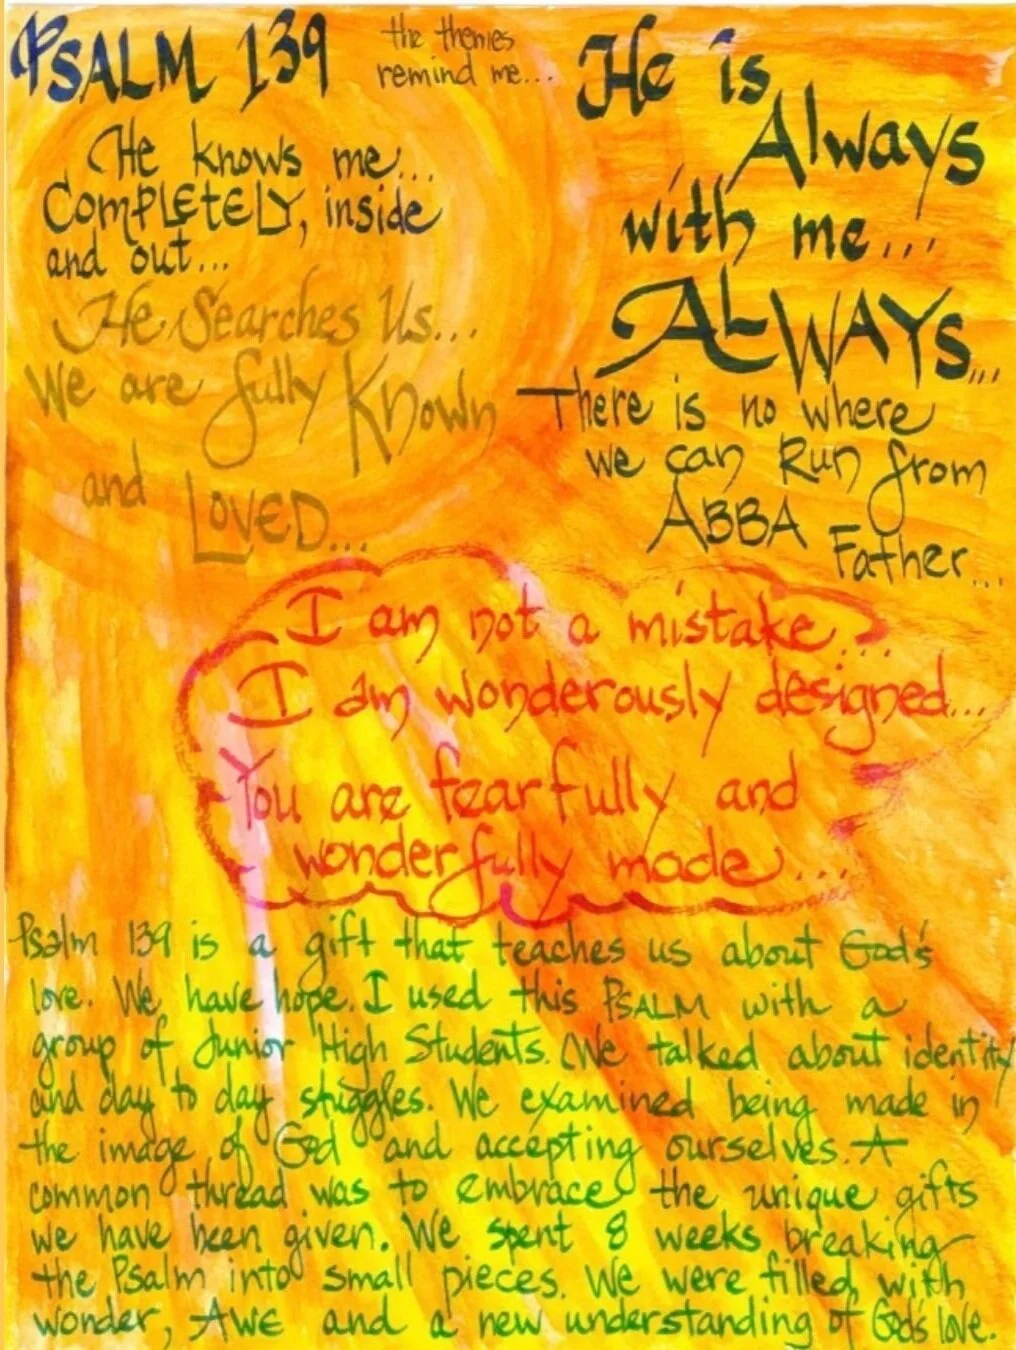 PSALM 139
the themes
remind me...
He knows me...
COMPLEtELY, inside
and out...
He Searches Us...
We are fully Known
and LOVED...
He is
Always
with me...
ALWAYS...
There is no where
we can Run from
ABBA
Father...
I am not a mistake...
I am wonderously designed...
You are fearfully and
wonderfully made...
Psalm 139 is a gift that teaches us about God's
love. We have hope. I used this PSALM with a
group of Junior High Students. We talked about identity
and day to day struggles. We examined being made in
the image of God and accepting ourselves. A
common thread was to embrace the unique gifts
we have been given. We spent 8 weeks breaking
the Psalm into small pieces. We were filled with
wonder, AWE and a new understanding of God's love.